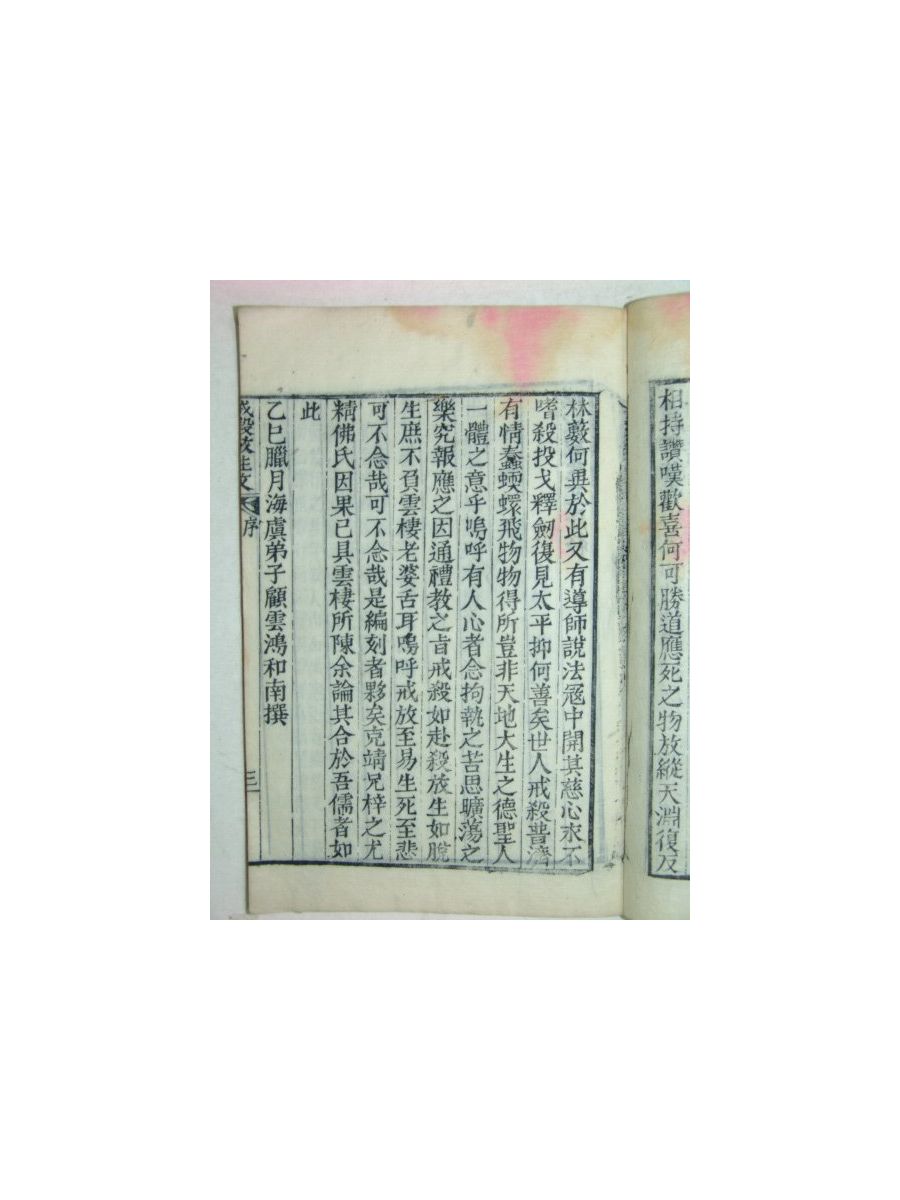 相持讃嘆歡喜何可勝道應死之物放縱天淵復反
林藪何異於此又有導師說法冦中開其慈心永不
嗜殺投戈釋劒復見太平抑何善矣世人戒殺普濟
有情蠢蝡蠉飛物物得所豈非天地大生之德聖人
一體之意乎嗚呼有人心者念拘執之苦思曠蕩之
樂究報應之因通禮教之旨戒殺如赴殺放生如脫
生庶不負雲棲老婆舌耳嗚呼戒放至易生死至悲
可不念哉可不念哉是編刻者夥矣克靖兄梓之尤
精佛氏因果已具雲棲所陳余論其合於吾儒者如
此
乙巳臘月海虞弟子顧雲鴻和南撰
戒殺放生文 序 三